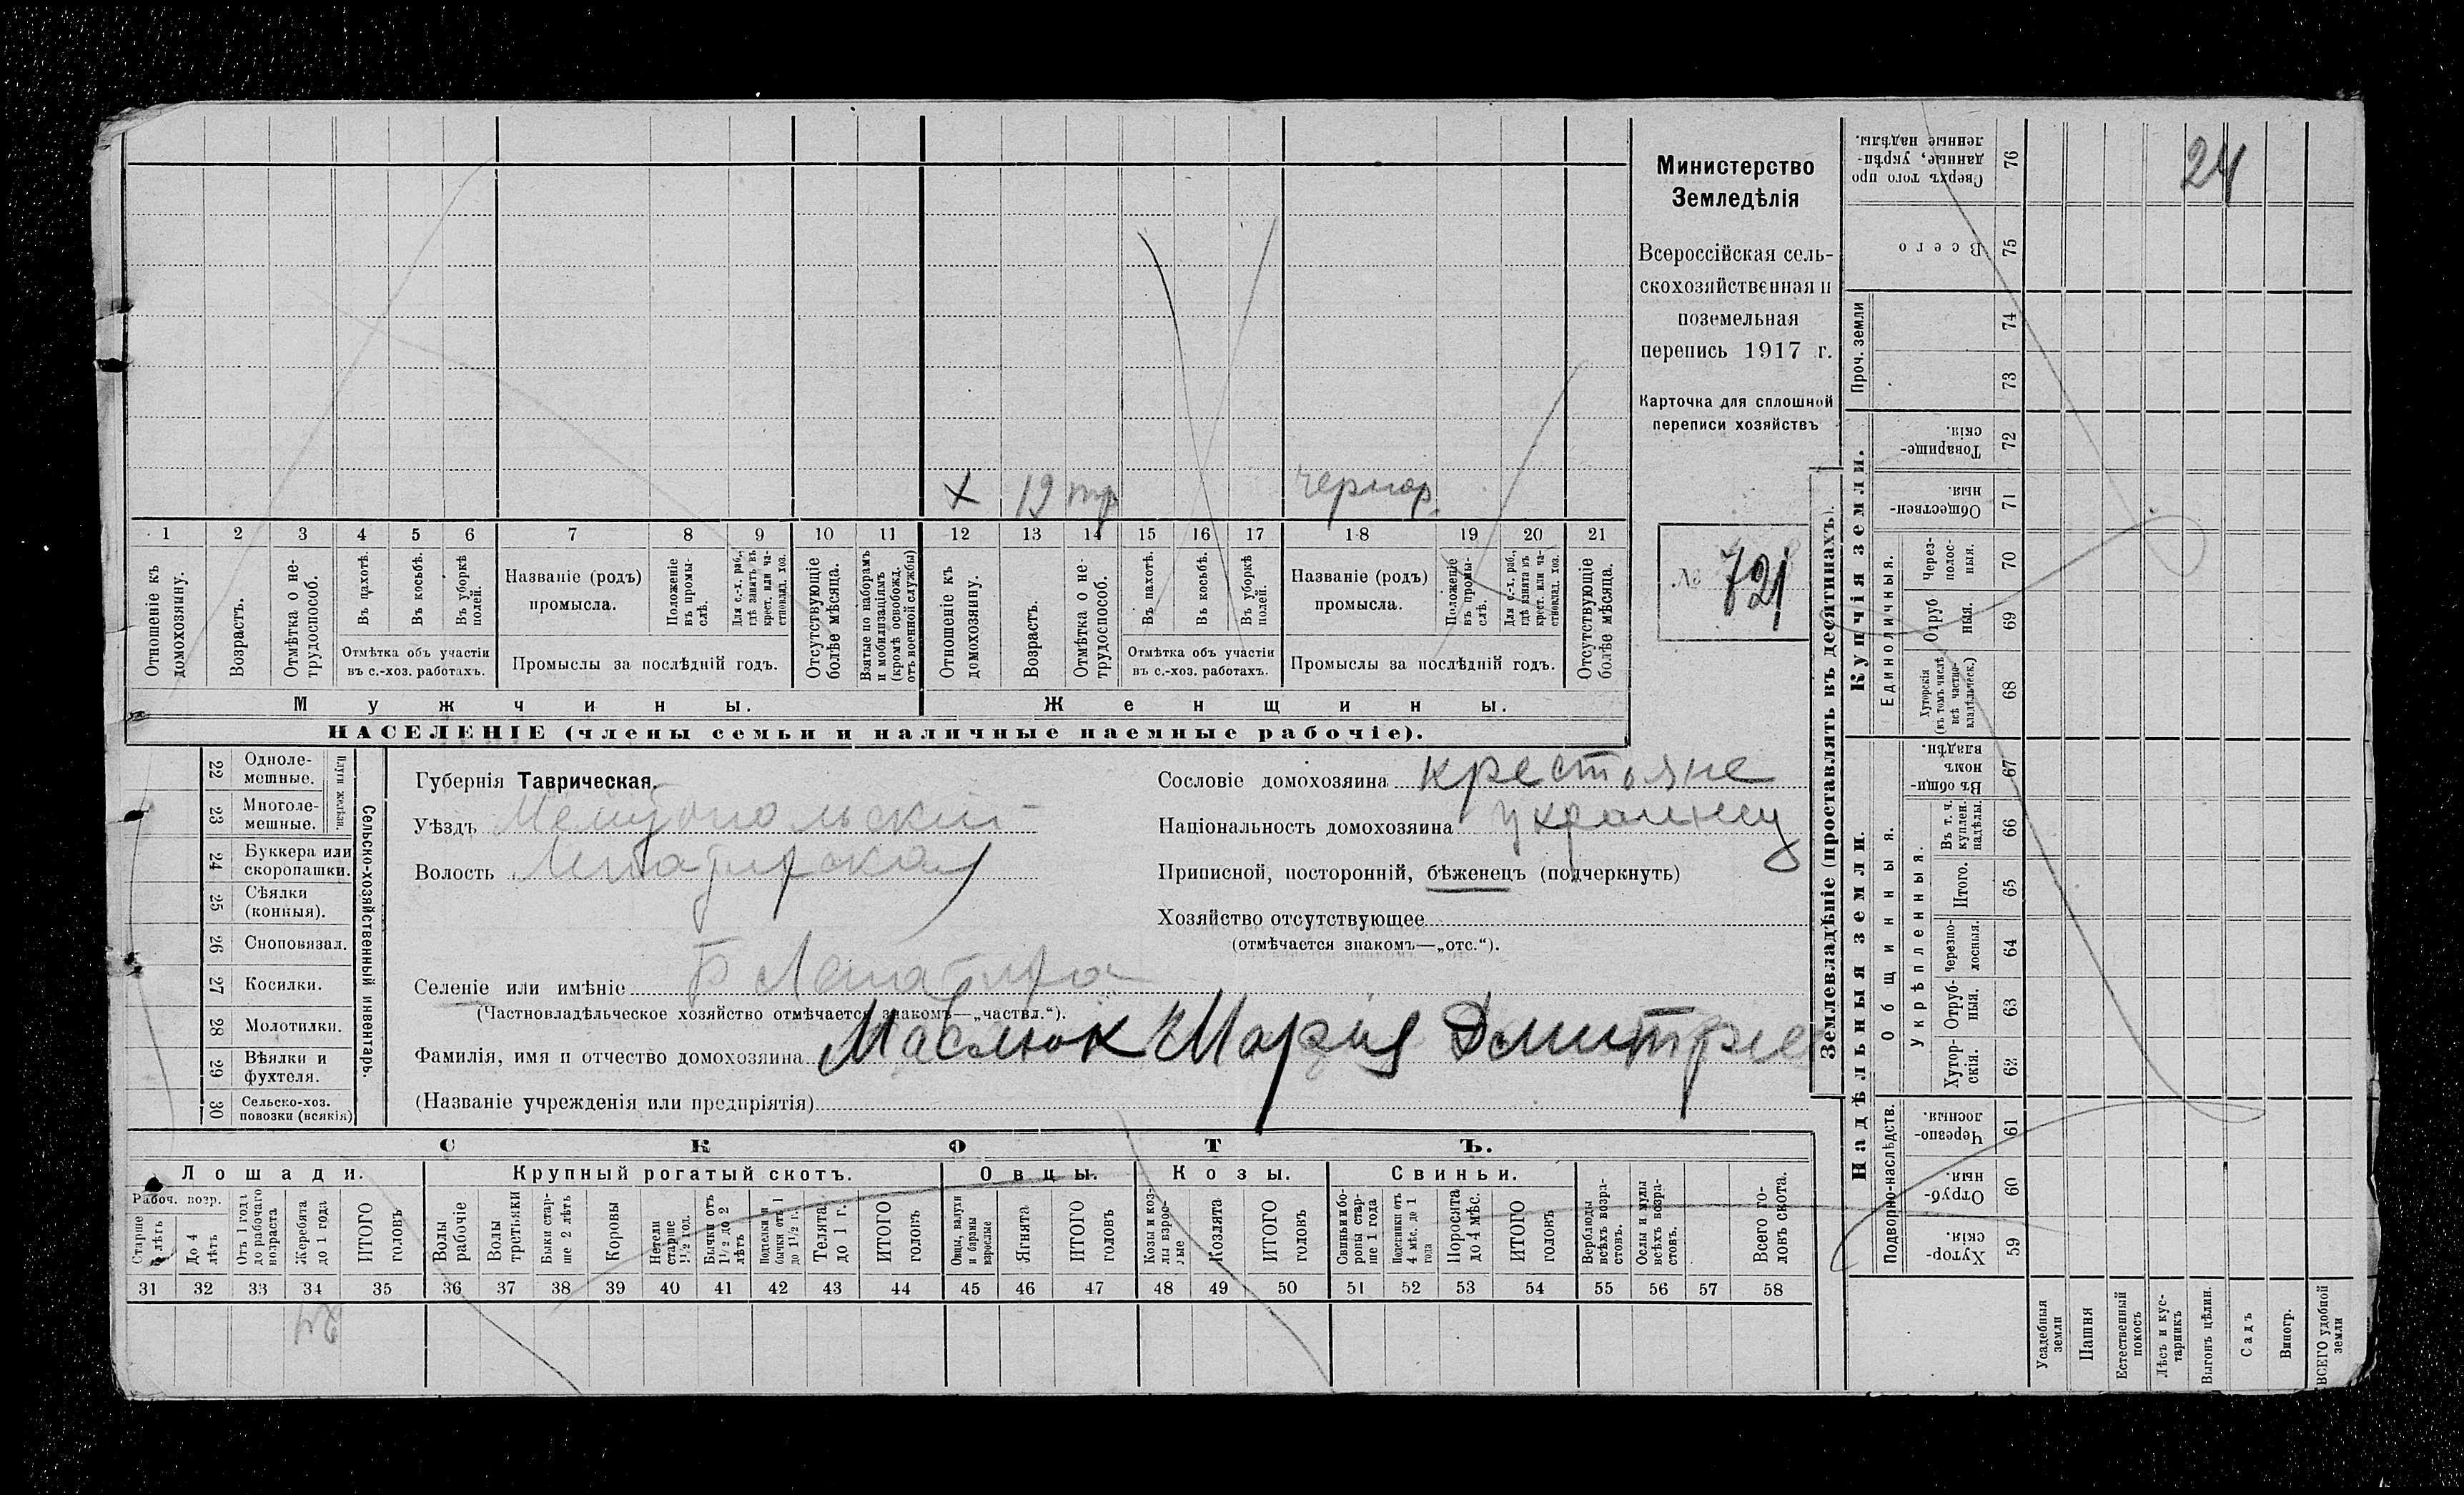 Министерство
Земледѣлія
Всероссійская сель-
скохозяйственная и
поземельная
перепись 1917 г.
Карточка для сплошной
переписи хозяйствъ
№ 721
24
х 19 тр чернор.
1 2 3 4 5 6 7 8 9 10 11 12 13 14 15 16 17 18 19 20 21
Отношеніе къ домохозяину.
Возрастъ.
Отмѣтка о не-трудоспособ.
Въ пахотѣ.
Въ косьбѣ.
Въ уборкѣ полей.
Отмѣтка объ участіи въ с.-хоз. работахъ.
Названіе (родъ) промысла.
Положеніе въ промы-слѣ.
Для с.-х. раб., гдѣ занятъ въ крест. или ча-стновлад. хоз.
Промыслы за послѣдній годъ.
Отсутствующіе болѣе мѣсяца.
Взятые по наборамъ и мобилизаціямъ (кромѣ освобожд. отъ военной службы)
Отношеніе къ домохозяину.
Возрастъ.
Отмѣтка о не-трудоспособ.
Въ пахотѣ.
Въ косьбѣ.
Въ уборкѣ полей.
Отмѣтка объ участіи въ с.-хоз. работахъ.
Названіе (родъ) промысла.
Положеніе въ промы-слѣ.
Для с.-х. раб., гдѣ занята въ крест. или ча-стновлад. хоз.
Промыслы за послѣдній годъ.
Отсутствующіе болѣе мѣсяца.
Мужчины. Женщины.
НАСЕЛЕНІЕ (члены семьи и наличные наемные рабочіе).
Сельско-хозяйственный инвентарь.
Плуги желѣзн.
22 Одноле-мешные.
23 Многоле-мешные.
24 Буккера или скоропашки.
25 Сѣялки (конныя).
26 Сноповязал.
27 Косилки.
28 Молотилки.
29 Вѣялки и фухтеля.
30 Сельско-хоз. повозки (всякія)
Губернія Таврическая.
Уѣздъ Мелитопольский
Волость
Селеніе или имѣніе Б
(Частновладѣльческое хозяйство отмѣчается знакомъ—„частвл.“).
Фамилія, имя и отчество домохозяина Маслюк Марія Дмитрие
(Названіе учрежденія или предпріятія)
Сословіе домохозяина крестьяне
Національность домохозяина украинец
Приписной, посторонній, бѣженецъ (подчеркнуть)
Хозяйство отсутствующее
(отмѣчается знакомъ—„отс.“).
СКОТЪ.
Лошади. Крупный рогатый скотъ. Овцы. Козы. Свиньи.
Рабоч. возр.
Старше 4 лѣтъ
До 4 лѣтъ
Отъ 1 года до рабочаго возраста
Жеребята до 1 года
ИТОГО головъ
Волы рабочіе
Волы третьяки
Быки стар-ше 2 лѣтъ
Коровы
Нетели старше 1½ год.
Бычки отъ 1½ до 2 лѣтъ
Подтелки и бычки отъ 1 до 1½ г.
Телята до 1 г.
ИТОГО головъ
Овцы, валухи и бараны взрослые
Ягнята
ИТОГО головъ
Козы и коз-лы взрос-лые
Козлята
ИТОГО головъ
Свиньи и бо-ровы стар-ше 1 года
Подсвинки отъ 4 мѣс. до 1 года
Поросята до 4 мѣс.
ИТОГО головъ
Верблюды всѣхъ возра-стовъ.
Ослы и мулы всѣхъ возра-стовъ.
Всего го-ловъ скота.
31 32 33 34 35 36 37 38 39 40 41 42 43 44 45 46 47 48 49 50 51 52 53 54 55 56 57 58
Землевладѣніе (проставлять въ десятинахъ).
Надѣльныя земли. Купчія земли. Проч. земли
Подворно-наслѣдств. Общинныя. Укрѣпленныя. Единоличныя.
Хутор-скія. 59
Отруб-ныя. 60
Черезпо-лосныя. 61
Хутор-скія. 62
Отруб-ныя. 63
Черезпо-лосныя. 64
Итого. 65
Въ т. ч. куплен. надѣлы. 66
Въ общи-номъ владѣн. 67
Хуторскія (въ томъ числѣ всѣ частно-владѣльческ.) 68
Отруб ныя. 69
Через-полос-ныя. 70
Обществен-ныя. 71
Товарище-скія. 72
73
74
Всего 75
Сверхъ того про данные, укрѣп-ленные надѣлы. 76
Усадебныя земли
Пашня
Естественный покосъ
Лѣсъ и кус-тарникъ
Выгонъ цѣлин.
Садъ
Виногр.
ВСЕГО удобной земли